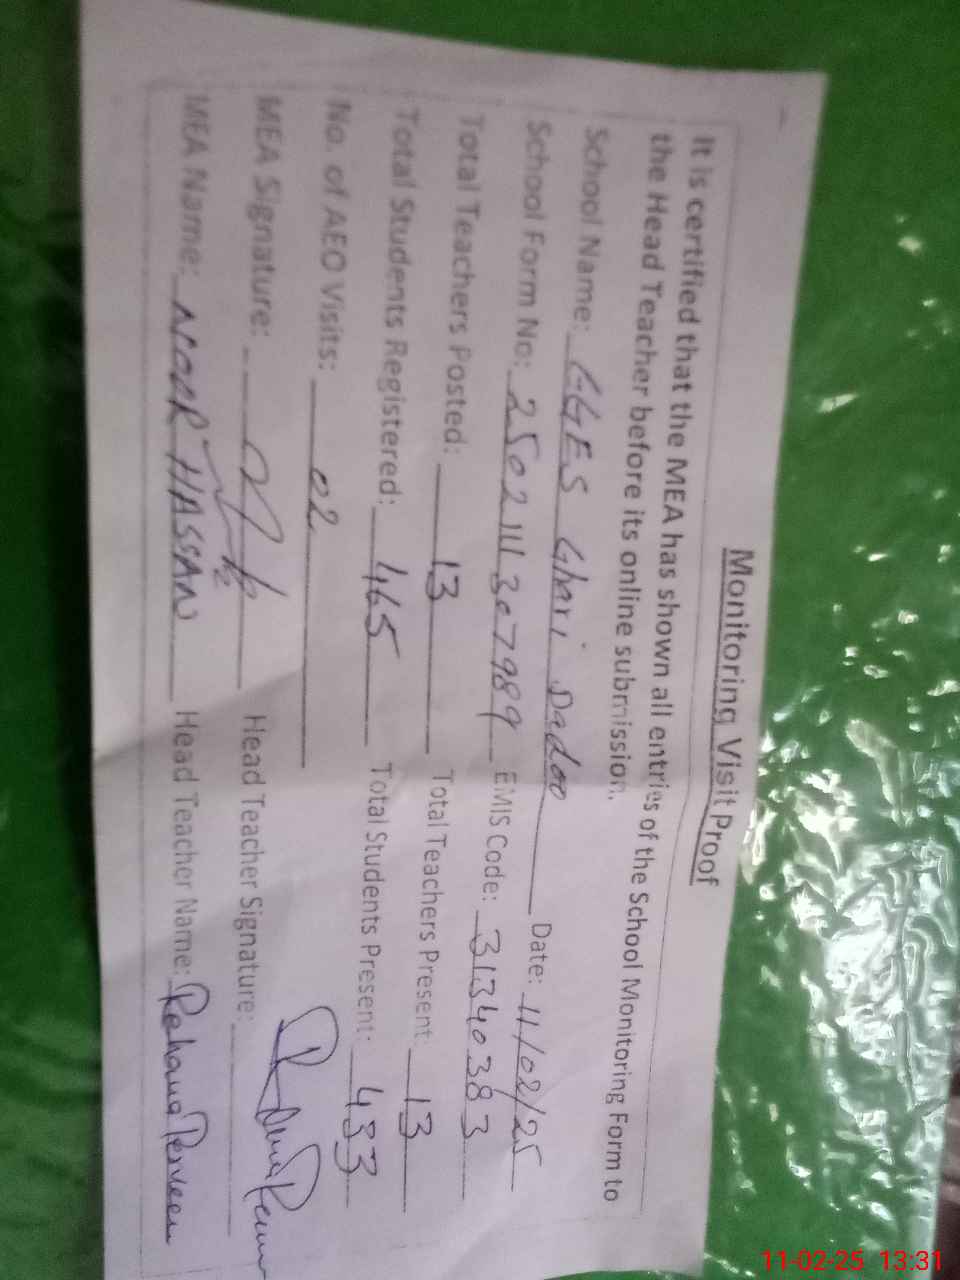 Monitoring Visit Proof
It is certified that the MEA has shown all entries of the School Monitoring Form to
the Head Teacher before its online submission.
School Name: GGES Ghari Dadoo Date: 11/02/25
School Form No: 2502111307989 EMIS Code: 31340383
Total Teachers Posted: 13 Total Teachers Present: 13
Total Students Registered: 465 Total Students Present: 433
No. of AEO Visits: 02
MEA Signature: Head Teacher Signature:
MEA Name: NOOR HASSAN Head Teacher Name: Rehana Perveen
11-02-25 13:31